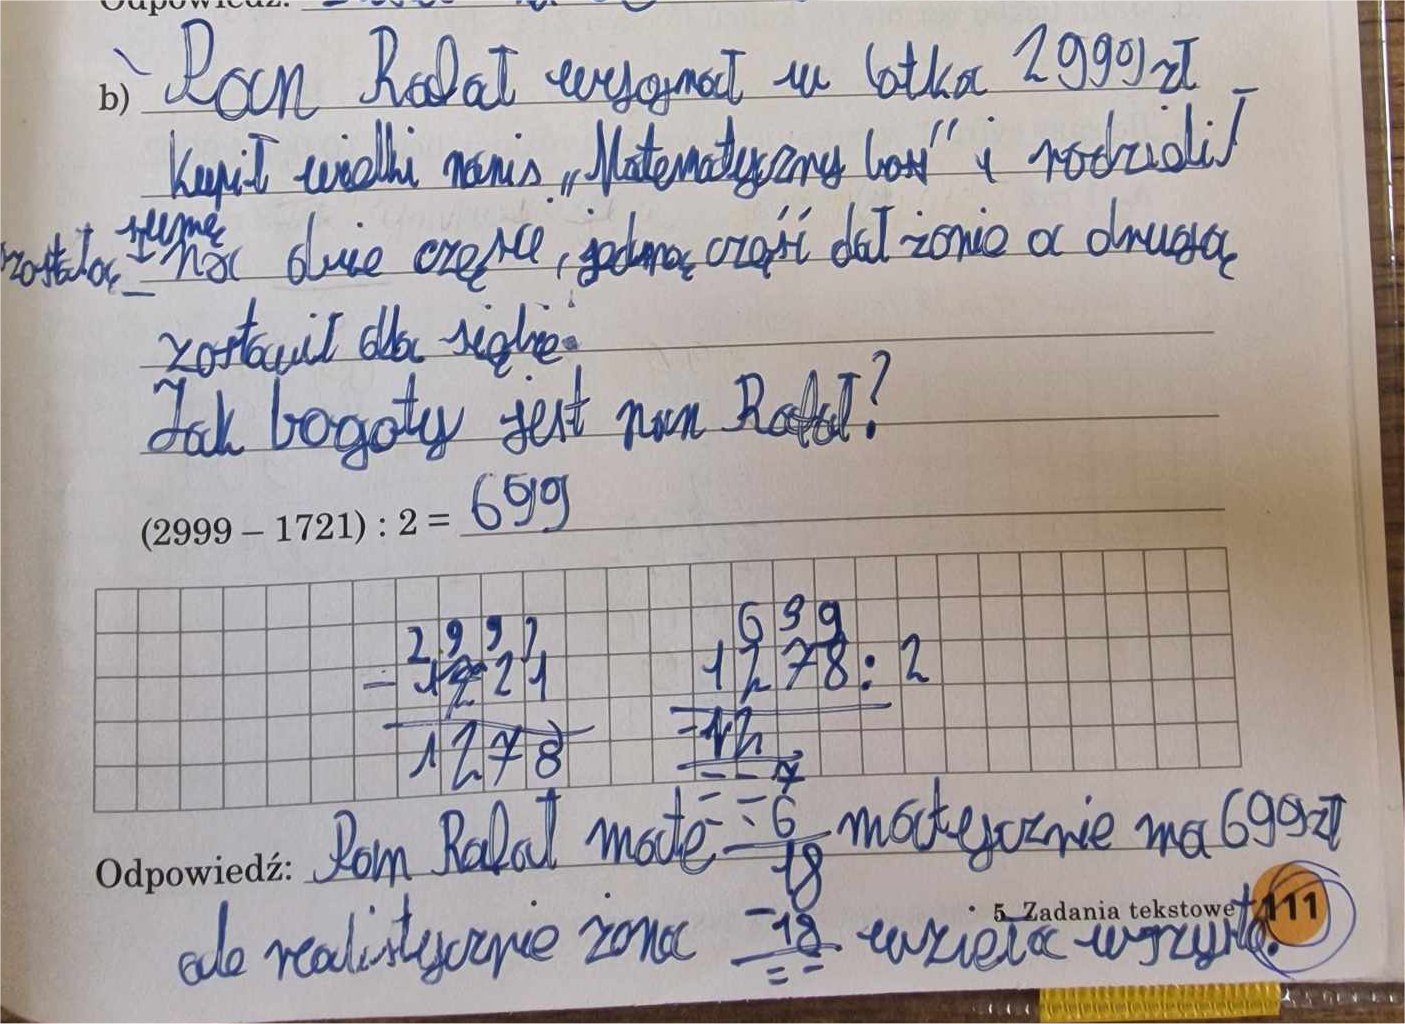 Odpowiedź:
b) Pan Rafał wygrał w lotka 2999 zł
kupił wielki napis „Matematyczny boss" i rozdzielił
zostałą sumę
na dwie częsce, jedną część dał żonie a drugą
zostawił dla siebie.
Jak bogaty jest pan Rafał?
(2999 – 1721) : 2 = 699
699
2999 1278 : 2
- 1721 - 12
1278 - - 7
Pan Rafał mate - 6 matycznie ma 699 zł
Odpowiedź:
18
5. Zadania tekstowe 111
ale realistycznie żona - 18 wzięła wszystko.
= =